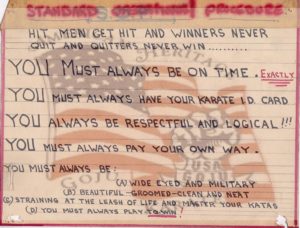 STANDARD OPERATIONAL PROCEDURE
HIT MEN GET HIT AND WINNERS NEVER
QUIT AND QUITTERS NEVER WIN..........
YOU MUST ALWAYS BE ON TIME. EXACTLY
YOU MUST ALWAYS HAVE YOUR KARATE I.D. CARD
YOU ALWAYS BE RESPECTFUL AND LOGICAL!!!
YOU MUST ALWAYS PAY YOUR OWN WAY.
YOU MUST ALWAYS BE:
(A) WIDE EYED AND MILITARY
(B) BEAUTIFUL-GROOMED-CLEAN AND NEAT
(C) STRAINING AT THE LEASH OF LIFE AND MASTER YOUR KATAS
(D) YOU MUST ALWAYS PLAY TO WIN!
HERITAGE
USA
GOJU